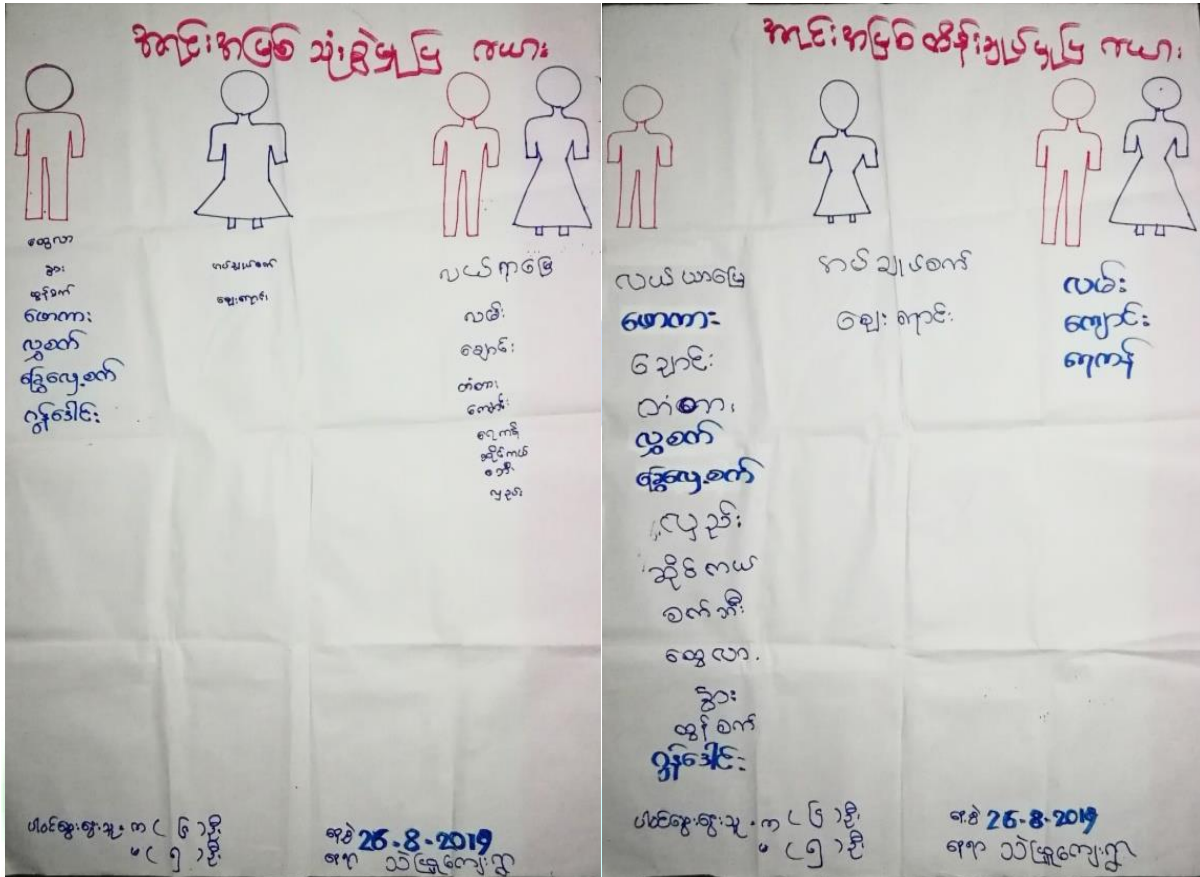 အရင်းအမြစ် သုံးစွဲမှုပြ ဇယား
ထွေလာ
နွား
ထွန်စက်
ဖောကား
လွှစက်
ခြွေလှေ့စက်
ဂွန်ဒေါင်း
အပ်ချုပ်စက်
ဈေးရောင်း
လယ်ရာမြေ
လမ်း
ချောင်း
တံတား
ကျောင်း
ရေကန်
ဆိုင်ကယ်
စက်ဘီး
လှည်း
ပါဝင်ဆွေးနွေးသူ - က ( ၆ ) ဦး
မ ( ၅ ) ဦး
နေ့စွဲ 26-8-2019
နေရာ သဲဖြူကျေးရွာ
အရင်းအမြစ် ထိန်းချုပ်မှုပြ ဇယား
လယ်ယာမြေ
ဖောကား
ချောင်း
တံတား
လွှစက်
ခြွေလှေ့စက်
လှည်း
ဆိုင်ကယ်
စက်ဘီး
ထွေလာ
နွား
ထွန်စက်
ဂွန်ဒေါင်း
အပ်ချုပ်စက်
ဈေးရောင်း
လမ်း
ကျောင်း
ရေကန်
ပါဝင်ဆွေးနွေးသူ - က ( ၆ ) ဦး
မ ( ၅ ) ဦး
နေ့စွဲ 26-8-2019
နေရာ သဲဖြူကျေးရွာ